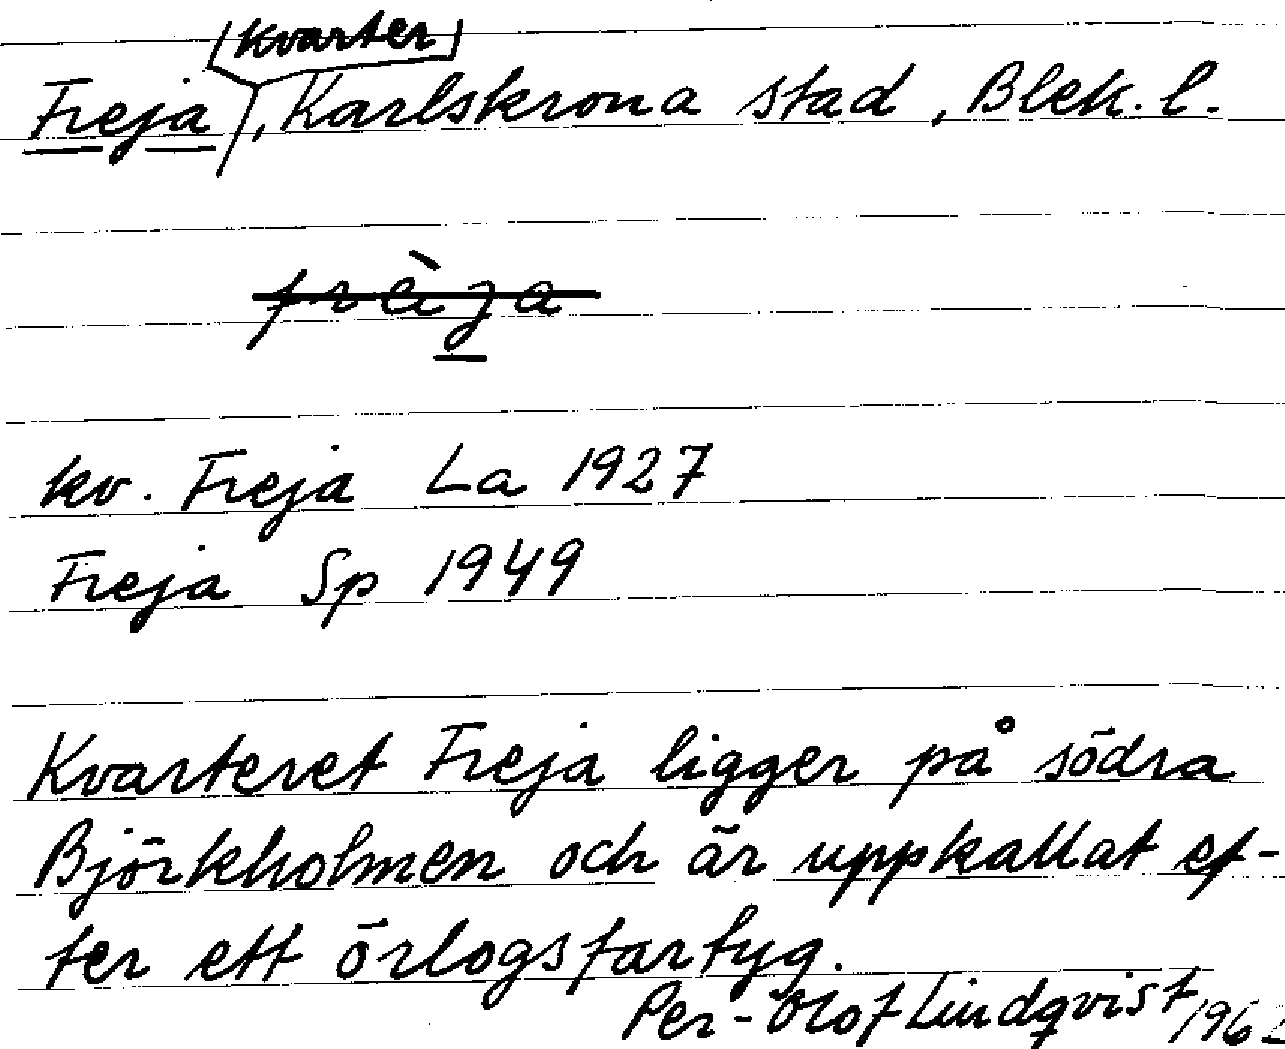 kvarter
Freja, Karlskrona stad, Blek. l.
frèja
kv. Freja La 1927
Freja Sp 1949
Kvarteret Freja ligger på södra
Björkholmen och är uppkallat ef-
ter ett örlogsfartyg.
Per-Olof Lindqvist